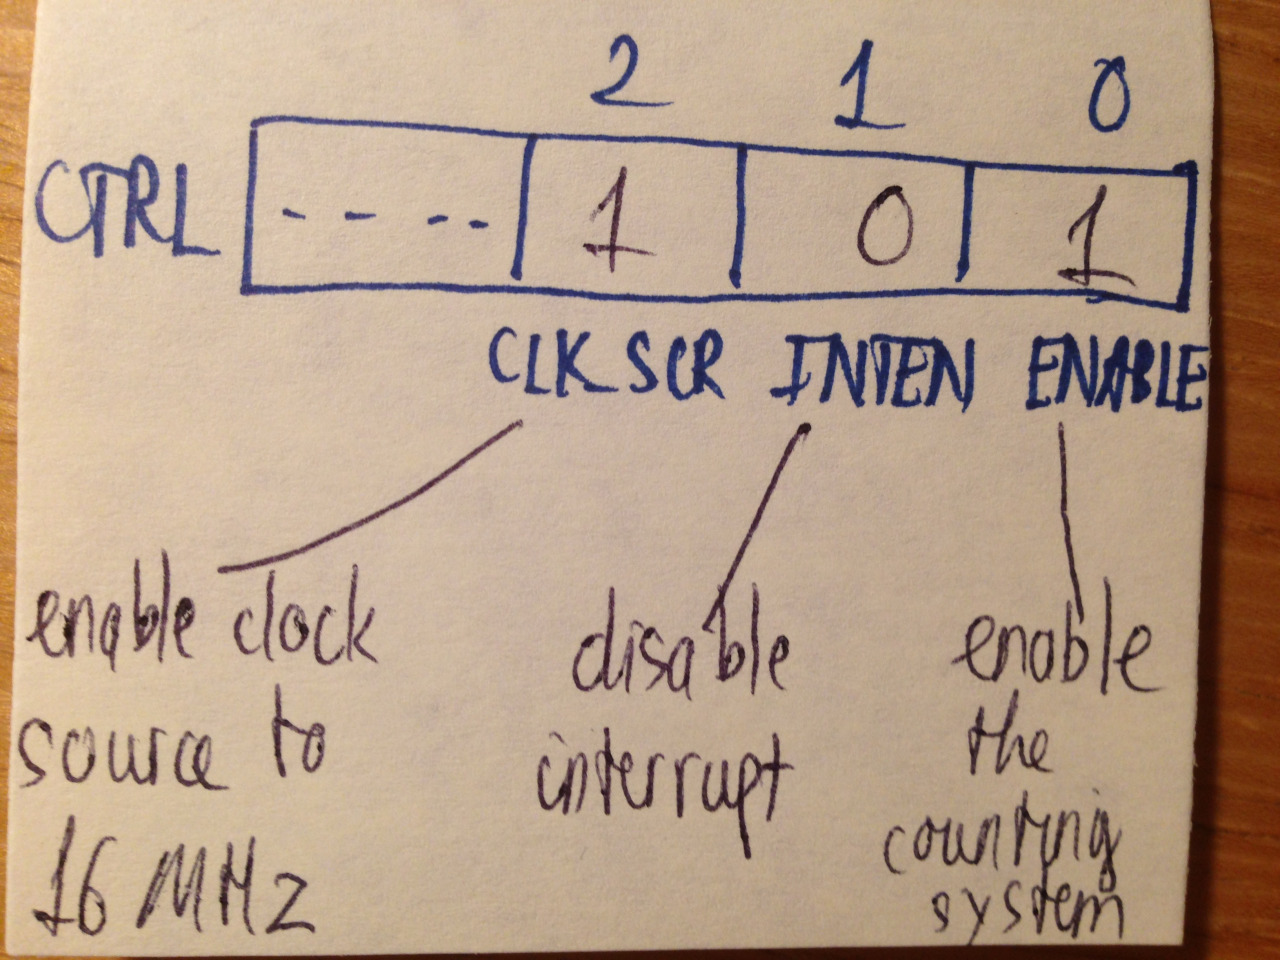 2 1 0
CTRL - - - - 1 0 1
CLK SCR INTEN ENABLE
enable clock
source to
16 MHz
disable
interrupt
enable
the
counting
system